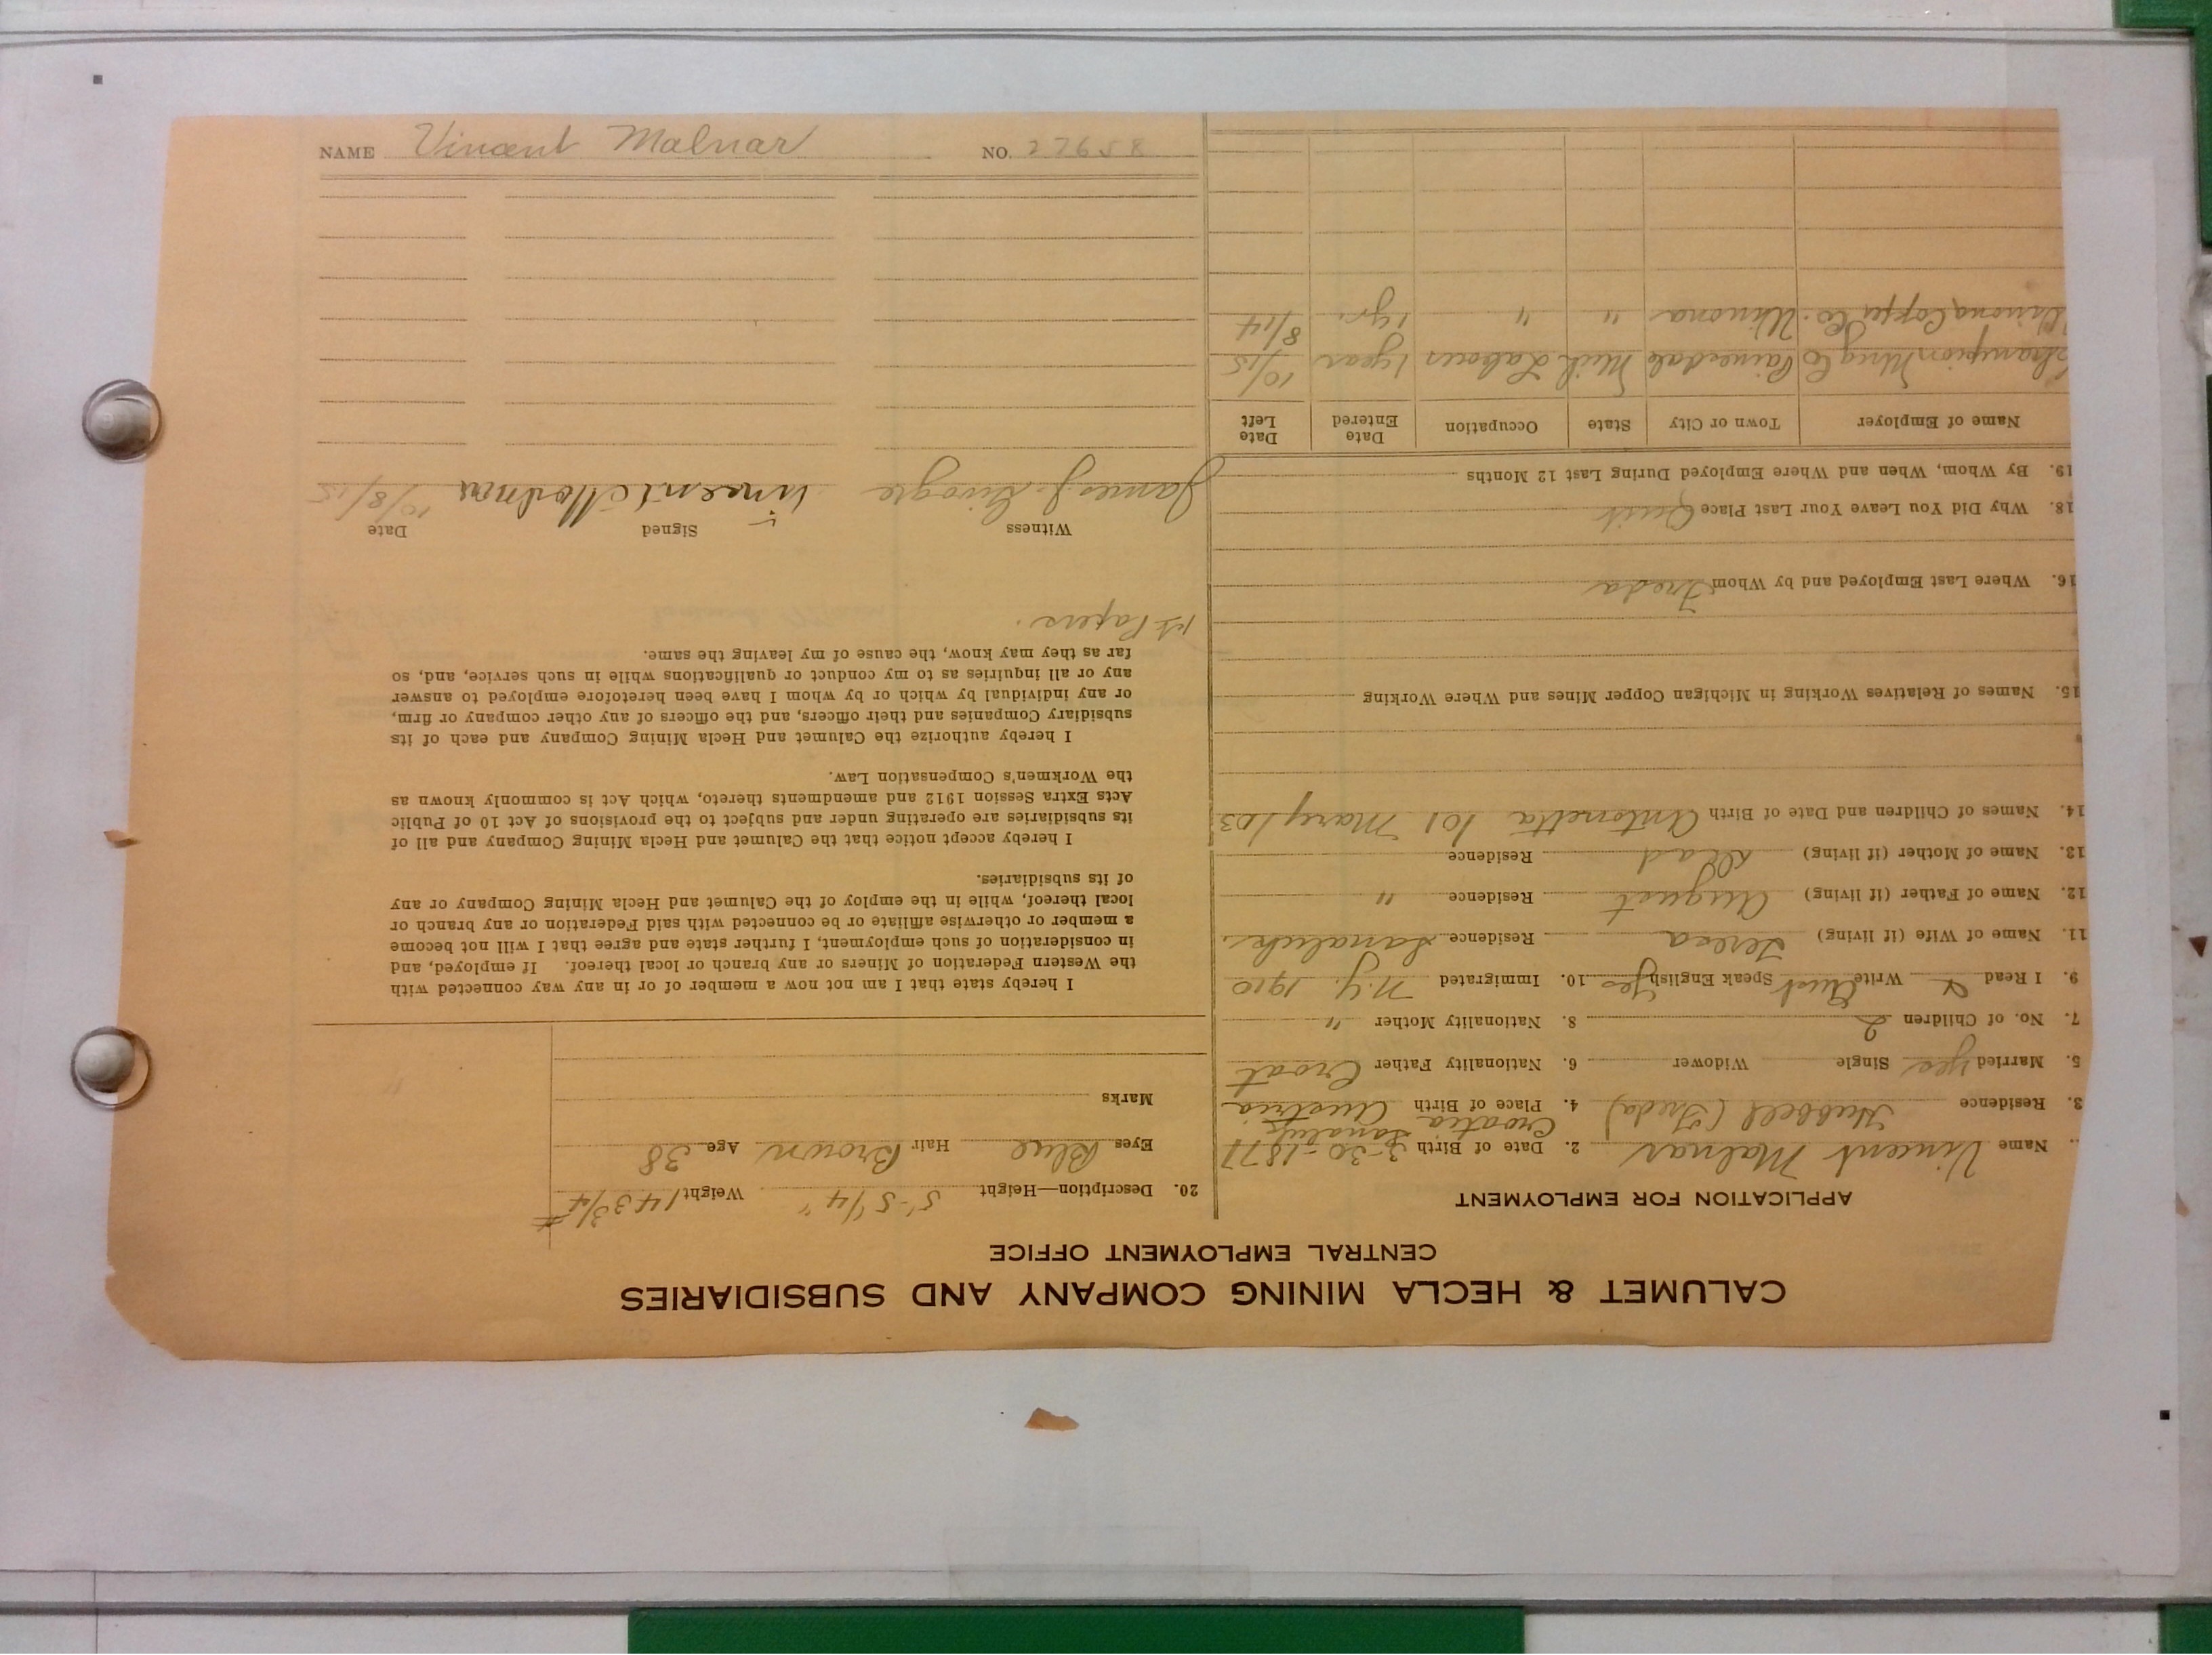 NAME Vincent Malnar NO. 27658
CALUMET & HECLA MINING COMPANY AND SUBSIDIARIES
CENTRAL EMPLOYMENT OFFICE
APPLICATION FOR EMPLOYMENT
Name Vincent Malnar 2. Date of Birth 3-30-1877
3. Residence Hubbell (Freda) 4. Place of Birth Croatia Austria
5. Married yes Single Widower 6. Nationality Father Croat
7. No. of Children 2 8. Nationality Mother "
9. I Read & Write Aust Speak English yes 10. Immigrated N.Y. 1910
11. Name of Wife (if living) Teresa Residence
12. Name of Father (if living) August Residence "
13. Name of Mother (if living) Dead Residence
14. Names of Children and Date of Birth Antonetta 101 Mary 103
15. Names of Relatives Working in Michigan Copper Mines and Where Working
16. Where Last Employed and by Whom Freda
18. Why Did You Leave Your Last Place Quit
19. By Whom, When and Where Employed During Last 12 Months
Name of Employer Town or City State Occupation Date Entered Date Left
Champion Mng Co Painesdale Mich Laborer 1 year 10/15
Winona Copper Co. Winona " " 1 yr. 8/14
20. Description—Height 5'-5 1/4" Weight 143 3/4 #
Eyes Blue Hair Brown Age 38
Marks
I hereby state that I am not now a member of or in any way connected with
the Western Federation of Miners or any branch or local thereof. If employed, and
in consideration of such employment, I further state and agree that I will not become
a member or otherwise affiliate or be connected with said Federation or any branch or
local thereof, while in the employ of the Calumet and Hecla Mining Company or any
of its subsidiaries.
I hereby accept notice that the Calumet and Hecla Mining Company and all of
its subsidiaries are operating under and subject to the provisions of Act 10 of Public
Acts Extra Session 1912 and amendments thereto, which Act is commonly known as
the Workmen's Compensation Law.
I hereby authorize the Calumet and Hecla Mining Company and each of its
subsidiary Companies and their officers, and the officers of any other company or firm,
or any individual by which or by whom I have been heretofore employed to answer
any or all inquiries as to my conduct or qualifications while in such service, and, so
far as they may know, the cause of my leaving the same.
1st Papers.
Witness Signed Date
James J. Vincent 10/8/15